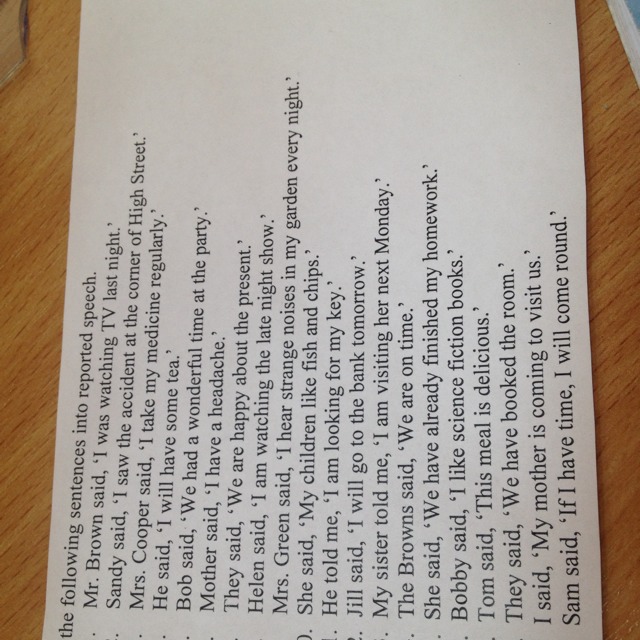 the following sentences into reported speech.
. Mr. Brown said, ‘I was watching TV last night.’
. Sandy said, ‘I saw the accident at the corner of High Street.’
. Mrs. Cooper said, ‘I take my medicine regularly.’
. He said, ‘I will have some tea.’
. Bob said, ‘We had a wonderful time at the party.’
. Mother said, ‘I have a headache.’
. They said, ‘We are happy about the present.’
. Helen said, ‘I am watching the late night show.’
. Mrs. Green said, ‘I hear strange noises in my garden every night.’
0. She said, ‘My children like fish and chips.’
. He told me, ‘I am looking for my key.’
. Jill said, ‘I will go to the bank tomorrow.’
. My sister told me, ‘I am visiting her next Monday.’
. The Browns said, ‘We are on time.’
. She said, ‘We have already finished my homework.’
. Bobby said, ‘I like science fiction books.’
. Tom said, ‘This meal is delicious.’
. They said, ‘We have booked the room.’
. I said, ‘My mother is coming to visit us.’
. Sam said, ‘If I have time, I will come round.’